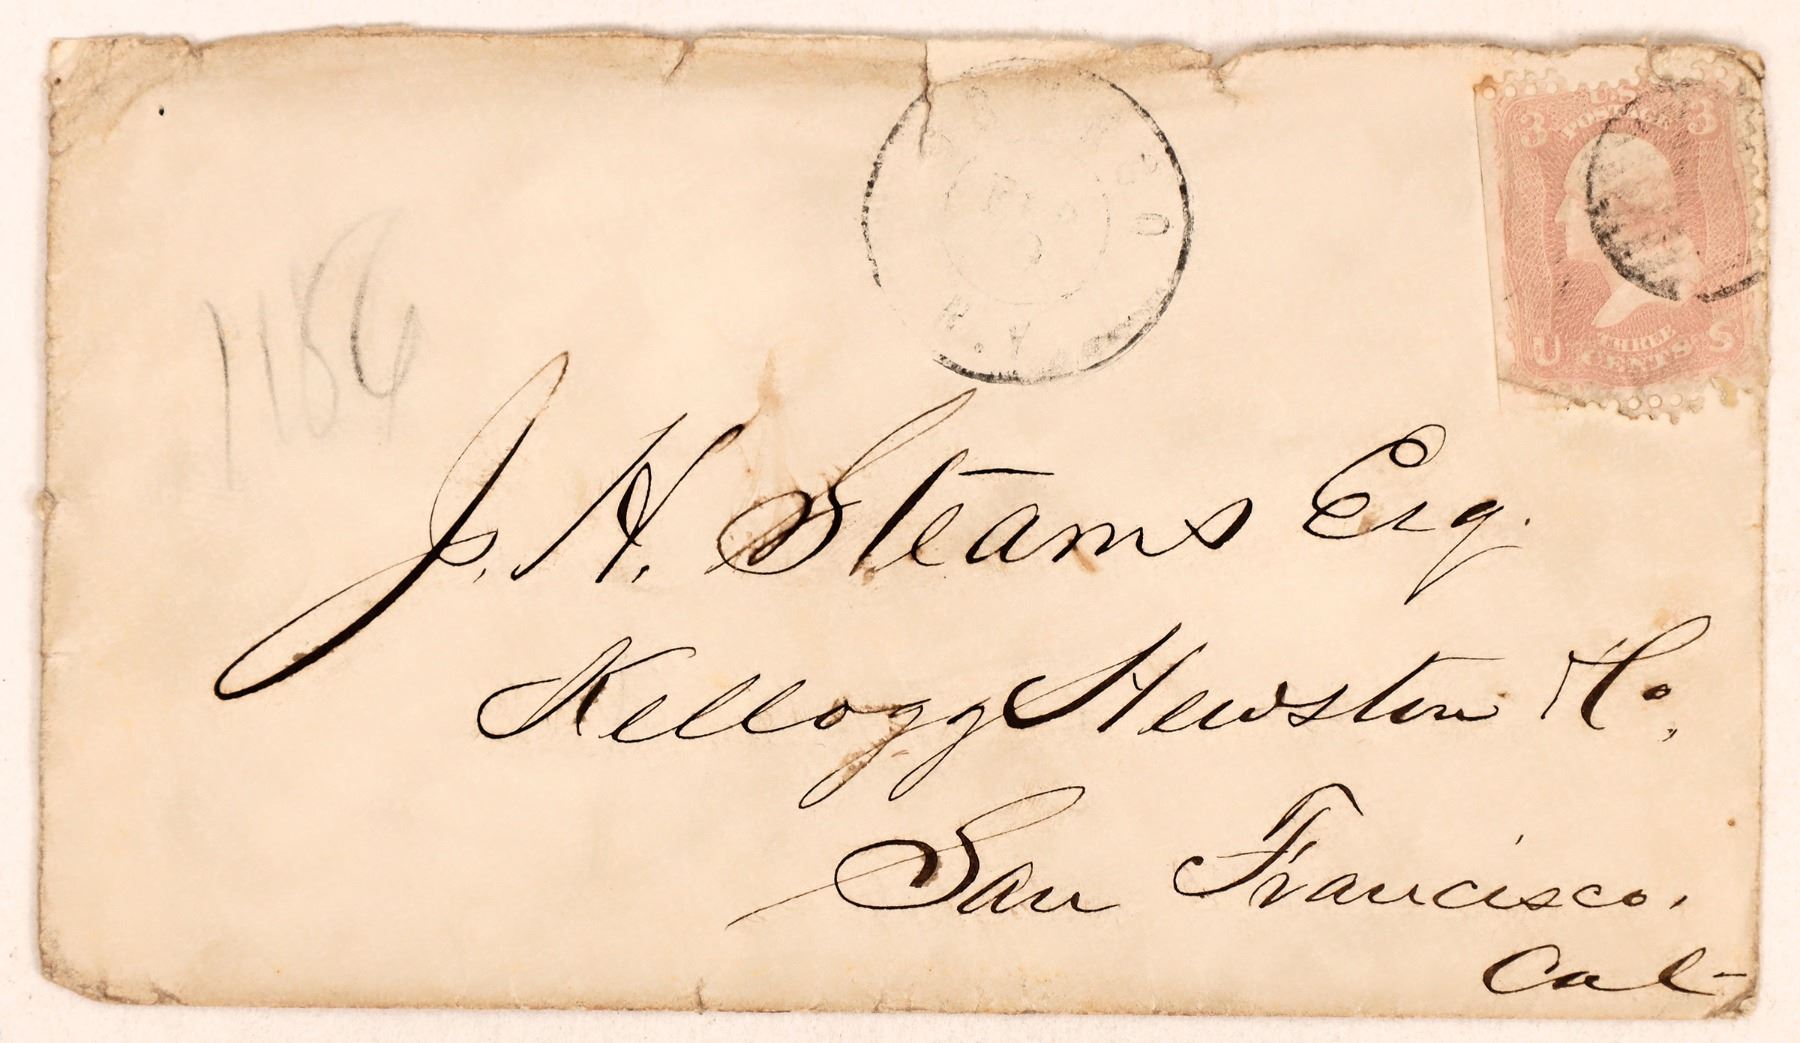 U.S.
POSTAGE
3 3
U THREE S
CENTS
N.Y.
1186
J. H. Stearns Esq.
Kellogg Hewston & Co,
San Francisco,
Cal-